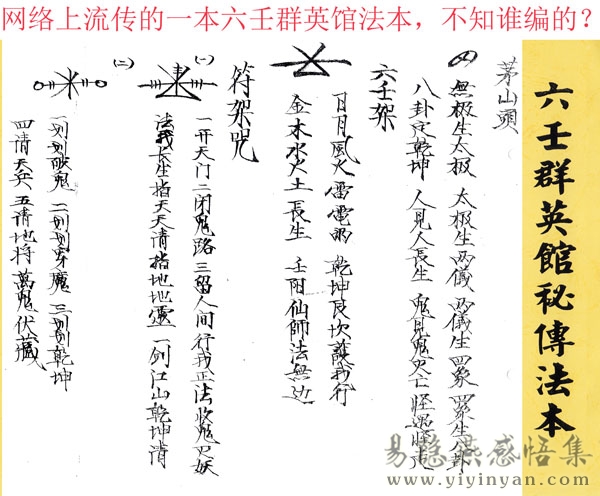 网络上流传的一本六壬群英馆法本，不知谁编的？
六壬群英館秘傳法本
茅山頭
無极生太极 太极生两儀 两儀生四象 四象生八卦
八卦定乾坤 人見人長生 鬼見鬼灭亡
六壬架
日月風火雷電雨 乾坤艮坎護我行
金木水火土長生 壬阳仙師法無边
符架咒
(一)
一开天门二闭鬼路三留人间行我正法收鬼灭妖
法我長生指天天清指地地靈 一剑江山乾坤清
(二)
一划划破鬼 二划划穿魔 三划划乾坤
四请天兵五请地将 萬鬼伏藏
易隐燕感悟集
www.yiyinyan.com